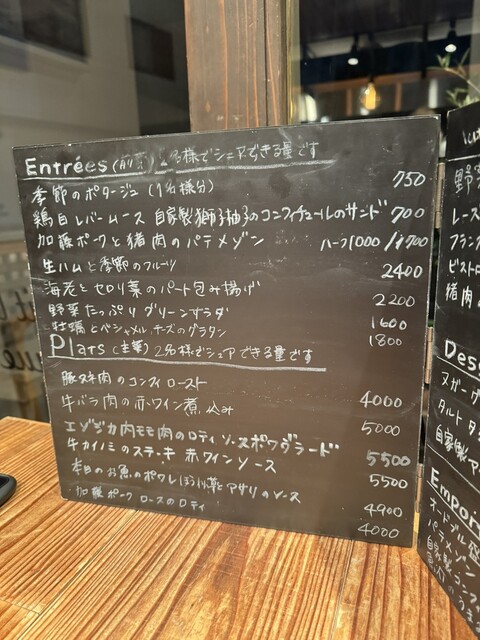 Entrées (前菜) 2名様でシェアできる量です
季節のポタージュ (1名様分) 750
鶏白レバームース 自家製獅子柚子のコンフィチュールのサンド 700
加藤ポークと猪肉のパテメゾン ハーフ1000 /1700
生ハムと季節のフルーツ 2400
海老とセロリ菜のパート包み揚げ 2200
野菜たっぷりグリーンサラダ 1600
牡蠣とベシャメル、チーズのグラタン 1800
Plats (主菜) 2名様でシェアできる量です
豚スネ肉のコンフィロースト 4000
牛バラ肉の赤ワイン煮込み 5000
エゾジカ内モモ肉のロティ ソースポワヴラード 5500
牛カイノミのステーキ 赤ワインソース 5500
本日のお魚のポワレ ほうれん草とアサリのソース 4900
加藤ポーク ロースのロティ 4000
野菜
レーズ
フランク
ビストロ
猪肉の
Des
ヌガーグ
タルト タ
自家製ア
Empor
オードブル
パテメゾン
自家製コンフィ